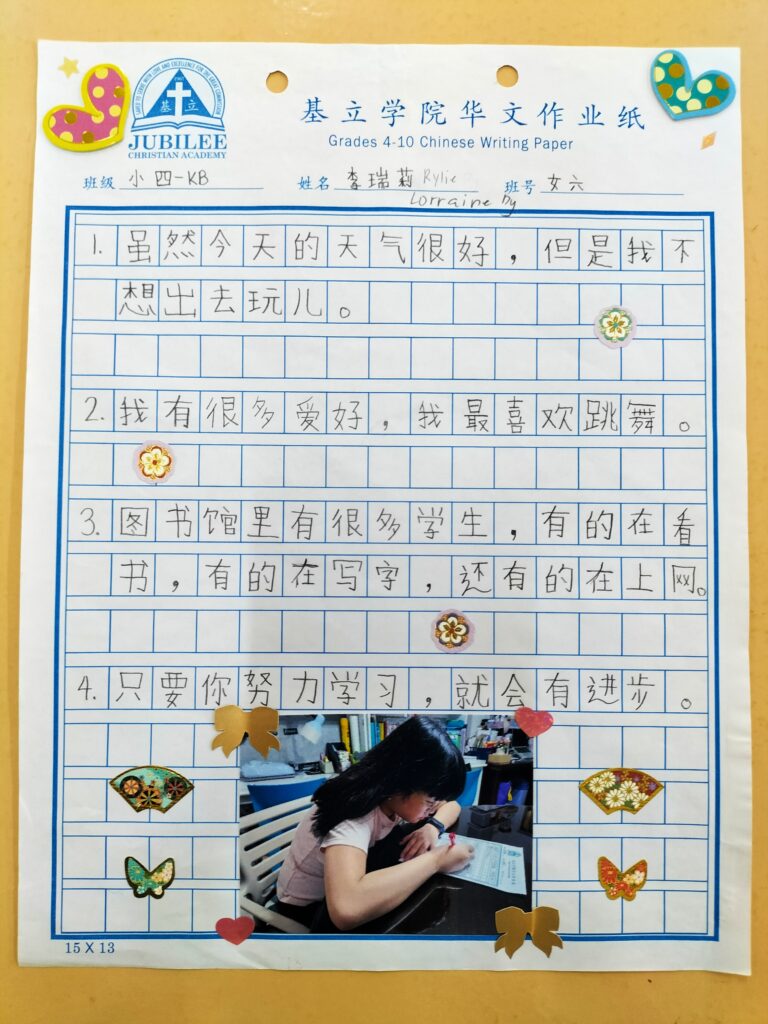 基立
JUBILEE
CHRISTIAN ACADEMY
基立学院华文作业纸
Grades 4-10 Chinese Writing Paper
班级 小四-KB 姓名 李瑞莉 Rylie 班号 女六
Lorraine Dy
1. 虽然今天的天气很好，但是我不
想出去玩儿。
2. 我有很多爱好，我最喜欢跳舞。
3. 图书馆里有很多学生，有的在看
书，有的在写字，还有的在上网。
4. 只要你努力学习，就会有进步。
15 X 13